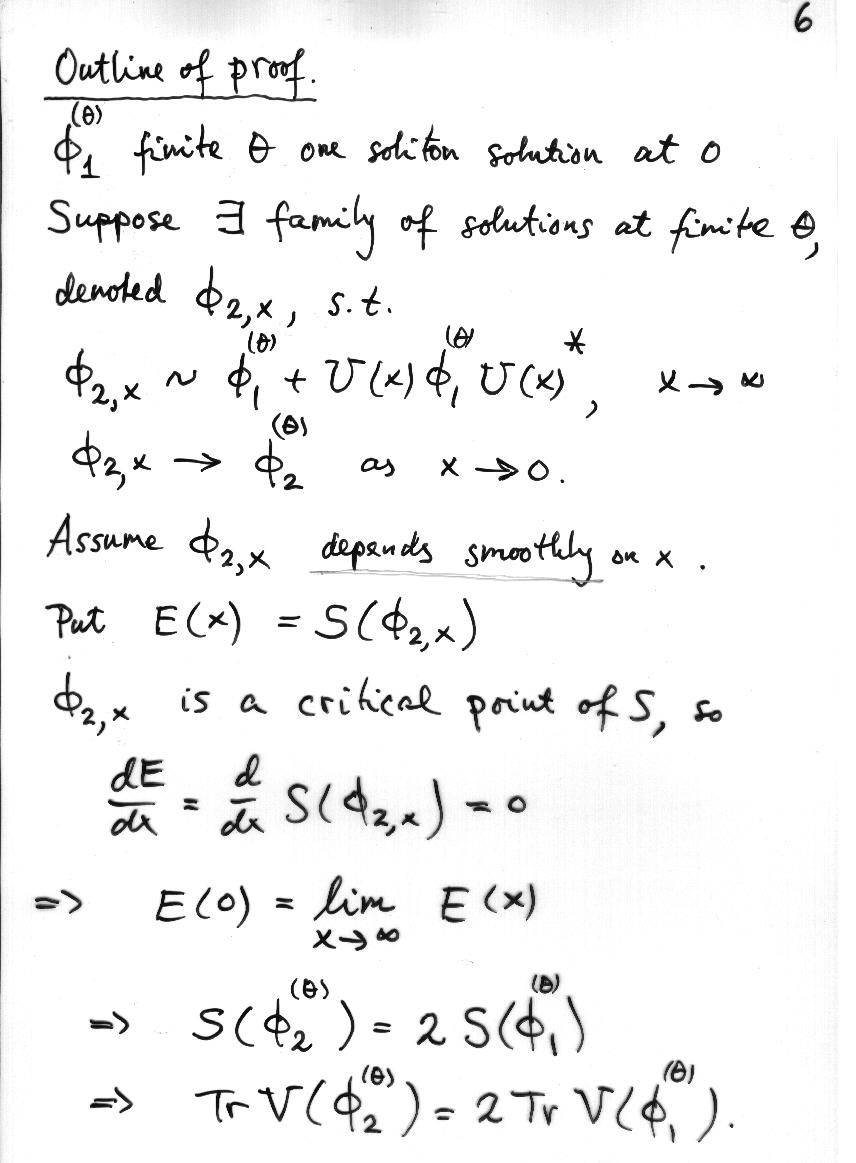 6
Outline of proof.
ϕ₁^(θ) finite θ one soliton solution at 0
Suppose ∃ family of solutions at finite θ,
denoted ϕ_{2,x}, s.t.
ϕ_{2,x} ~ ϕ₁^(θ) + U(x) ϕ₁^(θ) U(x)*, x → ∞
ϕ_{2,x} → ϕ₂^(θ) as x → 0.
Assume ϕ_{2,x} depends smoothly on x.
Put E(x) = S(ϕ_{2,x})
ϕ_{2,x} is a critical point of S, so
dE/dx = d/dx S(ϕ_{2,x}) = 0
=> E(0) = lim_{x→∞} E(x)
=> S(ϕ₂^(θ)) = 2 S(ϕ₁^(θ))
=> Tr V(ϕ₂^(θ)) = 2 Tr V(ϕ₁^(θ)).